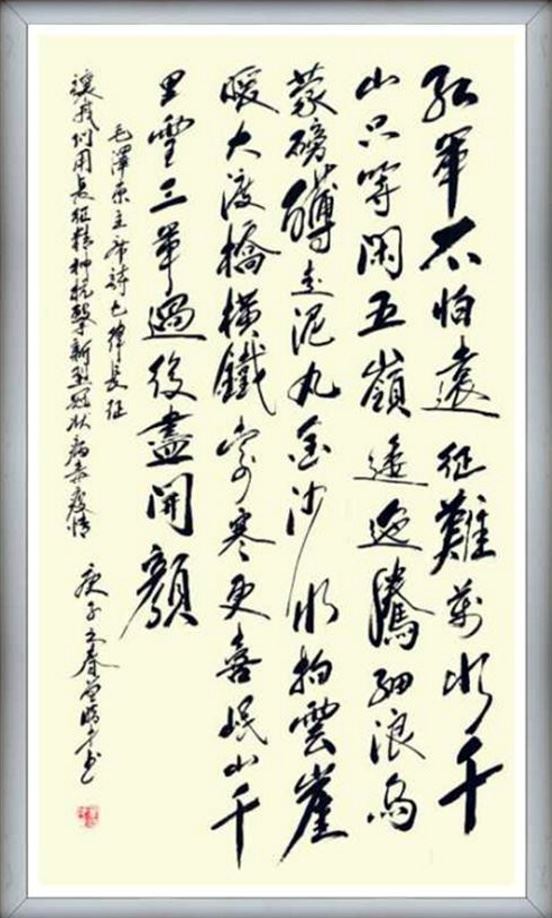 紅軍不怕遠征難萬水千
山只等閑五嶺逶迤騰細浪烏
蒙磅礴走泥丸金沙水拍雲崖
暖大渡橋橫鐵索寒更喜岷山千
里雪三軍過後盡開顏
毛澤東主席詩七律長征
讓我們用長征精神抗擊新型冠狀病毒疫情 庚子之春